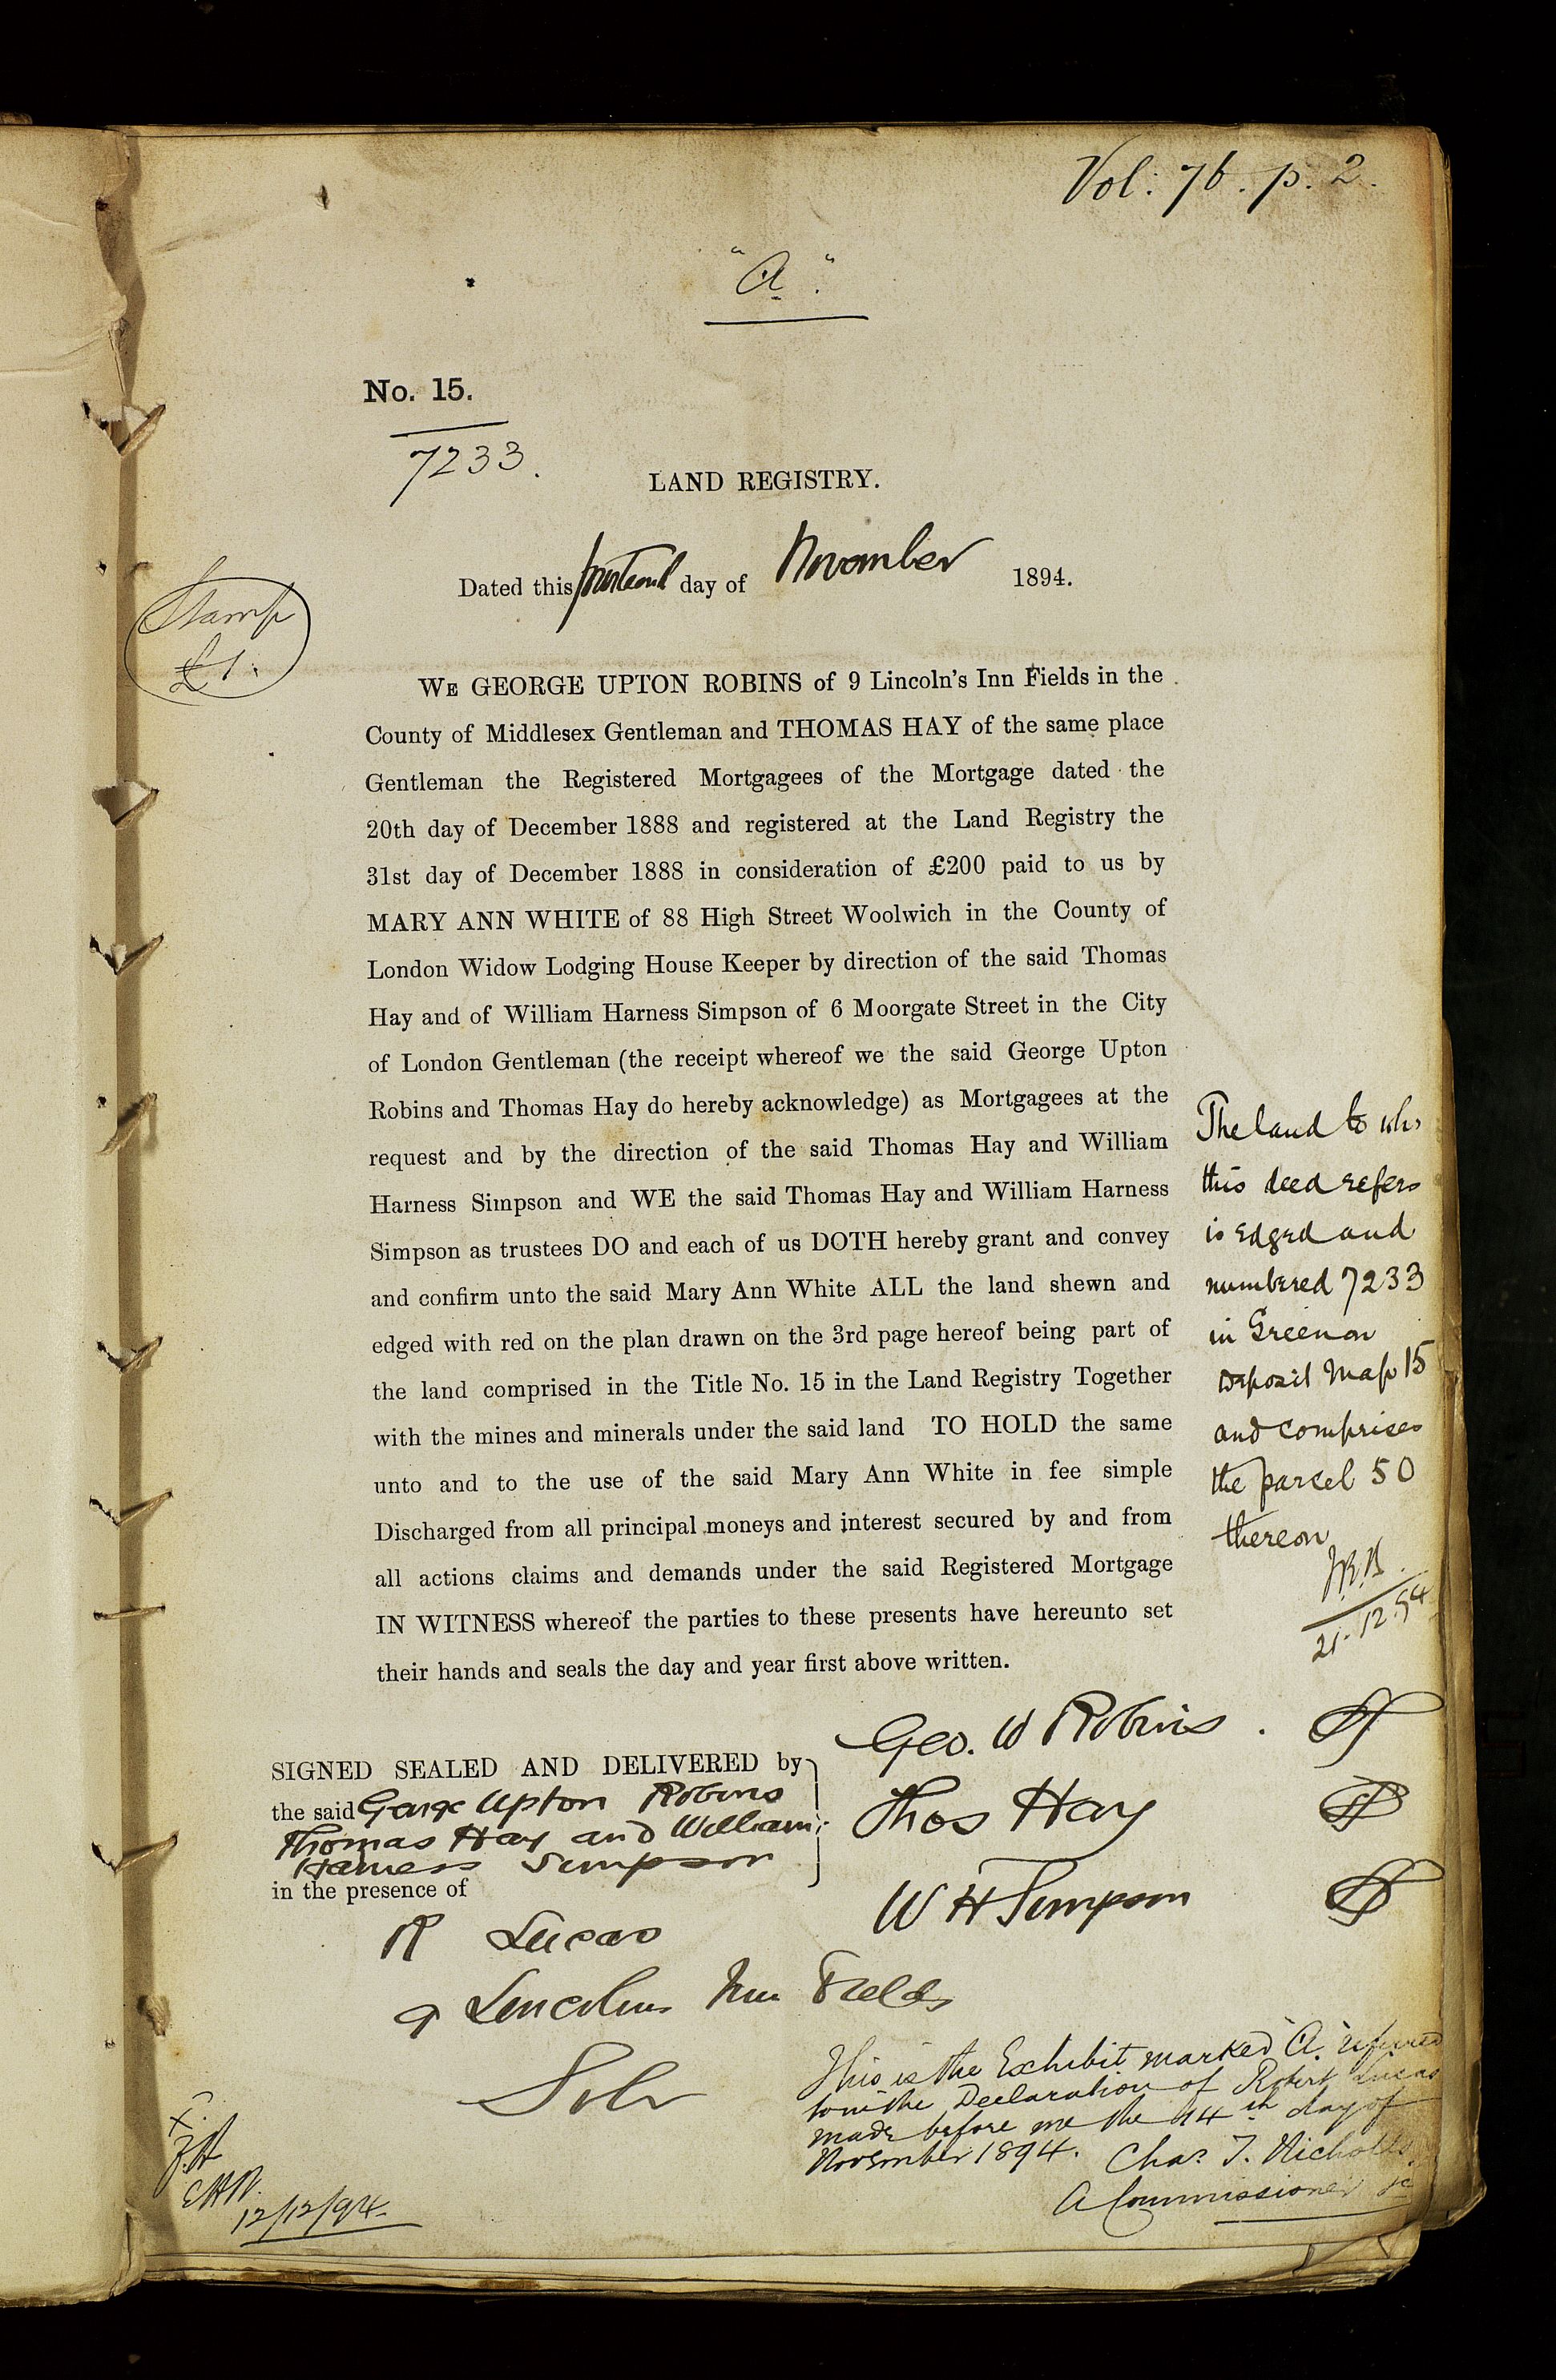 Vol: 76. p. 2.
"A".
No. 15.
7233.
LAND REGISTRY.
Dated this fourteenth day of November 1894.
Stamp
£1.
WE GEORGE UPTON ROBINS of 9 Lincoln's Inn Fields in the
County of Middlesex Gentleman and THOMAS HAY of the same place
Gentleman the Registered Mortgagees of the Mortgage dated the
20th day of December 1888 and registered at the Land Registry the
31st day of December 1888 in consideration of £200 paid to us by
MARY ANN WHITE of 88 High Street Woolwich in the County of
London Widow Lodging House Keeper by direction of the said Thomas
Hay and of William Harness Simpson of 6 Moorgate Street in the City
of London Gentleman (the receipt whereof we the said George Upton
Robins and Thomas Hay do hereby acknowledge) as Mortgagees at the
request and by the direction of the said Thomas Hay and William
Harness Simpson and WE the said Thomas Hay and William Harness
Simpson as trustees DO and each of us DOTH hereby grant and convey
and confirm unto the said Mary Ann White ALL the land shewn and
edged with red on the plan drawn on the 3rd page hereof being part of
the land comprised in the Title No. 15 in the Land Registry Together
with the mines and minerals under the said land TO HOLD the same
unto and to the use of the said Mary Ann White in fee simple
Discharged from all principal moneys and interest secured by and from
all actions claims and demands under the said Registered Mortgage
IN WITNESS whereof the parties to these presents have hereunto set
their hands and seals the day and year first above written.
The land to wh.
this deed refers
is Edged and
numbered 7233
in Green on
Deposit Map 15
and comprises
the parcel 50
thereon
21.12.94
SIGNED SEALED AND DELIVERED by
the said George Upton Robins
Thomas Hay and William
Harness Simpson
in the presence of
Geo. U Robins.
Thos Hay
W H Simpson
R Lucas
9 Lincolns Inn Fields
Solr
This is the Exhibit marked "A" referred
to in the Declaration of Robert Lucas
made before me the 14th day of
November 1894. Chas. T. Nicholls
A Commissioner &c
12/12/94